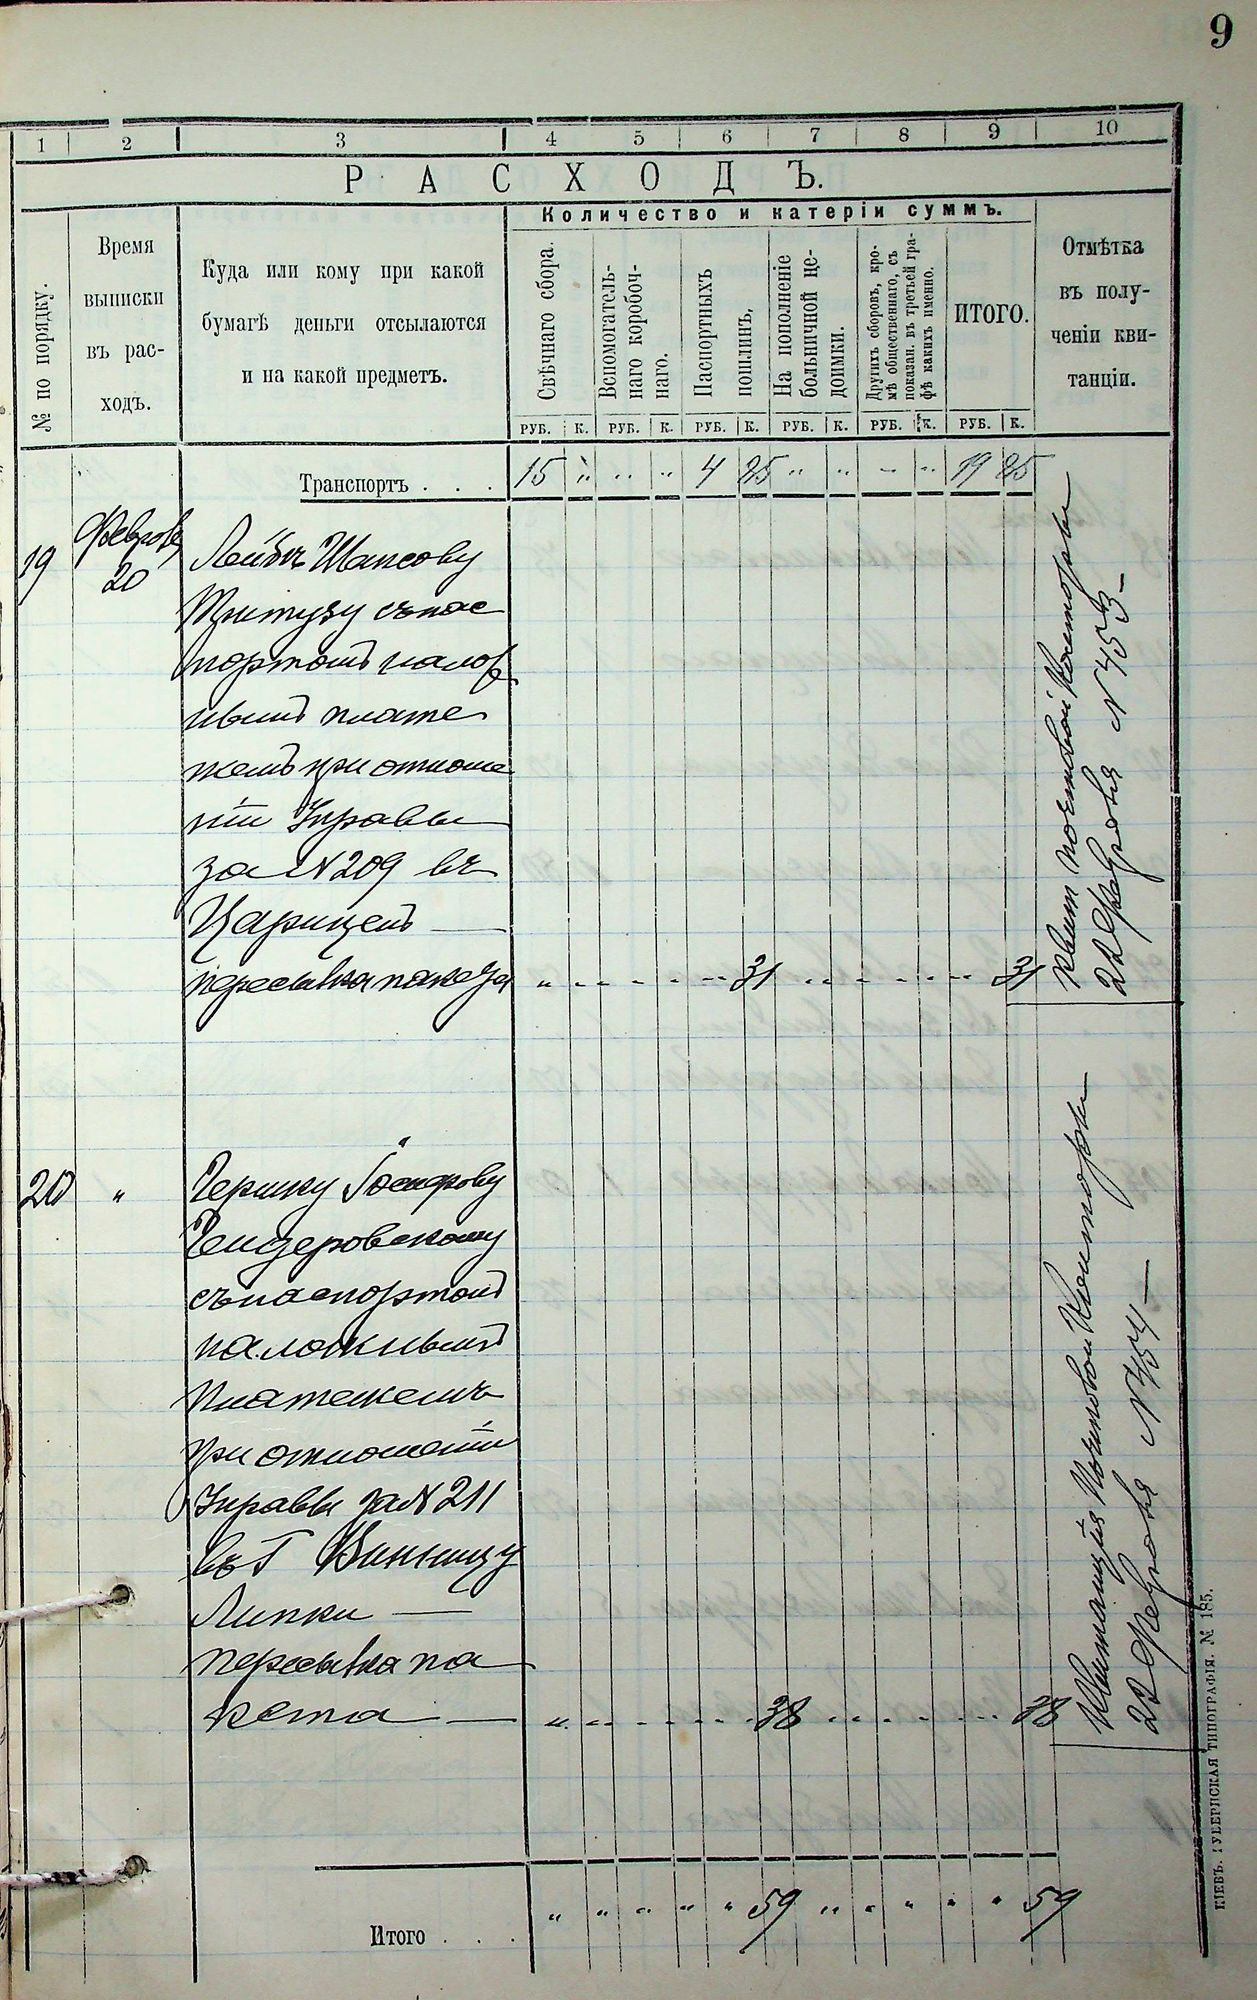 9
1 2 3 4 5 6 7 8 9 10
РАСХОДЪ.
№ по порядку.
Время
выписки
въ рас-
ходъ.
Куда или кому при какой
бумагѣ деньги отсылаются
и на какой предметъ.
Количество и катерiи суммъ.
Свѣчнаго сбора.
Вспомогатель-
наго коробоч-
наго.
Паспортныхъ
пошлинъ,
На пополненiе
больничной це-
доимки.
Другихъ сборовъ, кро-
мѣ общественнаго, съ
показан. въ третьей гра-
фѣ какихъ именно.
ИТОГО.
Отмѣтка
въ полу-
ченiи кви-
танцiи.
РУБ. К. РУБ. К. РУБ. К. РУБ. К. РУБ. К. РУБ. К.
Транспортъ . . . 15 " " " 4 25 " " " " 19 25
19
20
Лейбѣ Шапсову
Тритузу съ пас
портомъ налож
нымъ плате
жемъ при отноше
нiи Управы
за № 209 въ
Царицынъ —
пересылка пакета " " " " " 31 " " " " " 31
Квит почтовой Конторы
22 Февраля № 453 —
20 "
Гершку Iосифову
съ паспортомъ
наложнымъ
платежемъ
при отношенiи
Управы за № 211
въ Г Винницу
Липки —
пересылка па
кета — " " " " " 38 " " " " " 38
Квитанцiя Почтовой Конторы
22 Февраля № 454 —
Итого . . . " " " " " 59 " " " " " 59
КIЕВЪ. ГУБЕРНСКАЯ ТИПОГРАФIЯ. № 185.